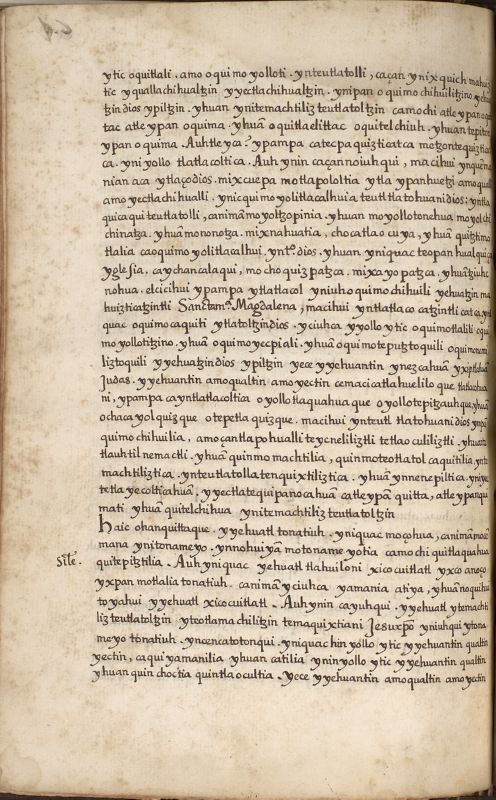 ytic oquitlali. amo oquimoyolloti. ynteutlatolli, caçan ynixquich mahuiz
tic yquallachihualtzin yyectlachihualtzin. ynipan oquimochihuilitzino ychua
tzin dios ypiltzin. yhuan ynitemachtiliz teutlatoltzin camochi atle ypan oqui
tac atle ypan oquima. yhuā oquitlaelittac oquitelchiuh. yhuan tepiton
ypan oquima. Auhtleyca? ypampa catecpa quizticatca metzonte quiztica
ca. yniyollo tlatlacoltica. Auh ynin caçannoiuhqui, macihui ynquenma
nian aca ytlaçodios. mixcuepa motlapololtia ytla ypanhuetzi amoqualli
amo yectlachihualli. ynic quimoyolitlacalhuia teutl tlatohuani dios; yntla
quicaqui teutlatolli, canimā moyoltzopinia. yhuan moyollotonehua moyolchi
chinatza. yhuā mononotza. mixnahuatia, chocatlaocuya, yhuā quitztimo
tlalia caoquimoyolitlacalhui. yntō dios. yhuan yniquac teopan hualquiça
yglesia. caychancalaqui, mochoquizpatzca. mixayopatzca. yhuā tziuhc
nohua. elcicihui ypampa ytlatlacol yniuh oquimochihuili yehuatzin ma
huizticatzintli Sanctamā Magdalena, macihui yntlatlacocatzintli catca, yni
quac oquimocaquiti ytlatoltzin dios. yciuhca yyolloytic oquimotlalili oqui
moyollotitzino. yhuā oquimoyecpiali. yhuā oquimoteputztoquili oquimonemi
liztoquili yyehuatzin dios ypiltzin yece yyehuantin ynezcahuā yxiptlahuā
Judas. yyehuantin amoqualtin amoyectin cemacicatlahueliloque tlatlacohua
ni, ypampa cayntlatlacoltica oyollotlaquahuaque oyollotepitzauhque, yhuā
ochacayolquizque otepetlaquizque. macihui ynteutl tlatohuani dios ynpā
quimochihuilia, amoçantlapohualli teycneliliztli tetlaoculiliztli. yhuan
tlauhtilnemactli. yhuā quinmomachtilia, quinmoteotlatolcaquitilia, ynte
machtiliztica. ynteutlatollatenquixtiliztica. yhuā ynnenepiltica. yniyec
tetlayecolticahuā, yyectlatequipanocahuā catleypā quitta, atle ypan qui
mati yhuā quitelchihua ynitemachtiliz teutlatoltzin
haic ohanquittaque. yyehuatl tonatiuh. yniquac mocohua, canimā mocē
mana ynitonameyo. ynnohuiyā motonameyotia camochi quitlaquahua
quitepitztilia. Auh yniquac yehuatl tlahuiloni xicocuitlatl yxco anoço
yxpan motlalia tonatiuh. canimā yciuhca yamania atiya, yhuā noquihua
toyahui yyehuatl xicocuitlatl. Auh ynin cayuhqui. yyehuatl ytemachti
liz teutlatoltzin yteotlamachiliztzin temaquixtiani Jesuxpō yniuhqui ytona
meyo tonatiuh. yncencatotonqui. yniquac hin yolloytic yyehuantin qualtin
yectin, caquiyamanilia yhuan catilia yninyolloytic yyehuantin qualtin
yhuan quinchoctia quintlaocultia. yece yyehuantin amoqualtin amoyectin